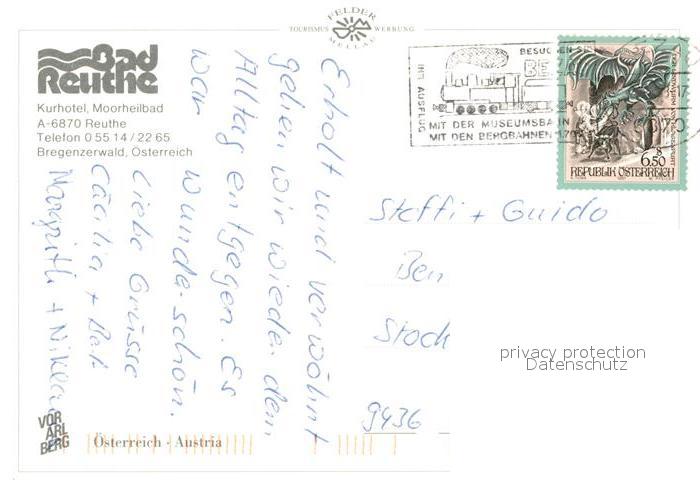 FELDER
TOURISMUS WERBUNG
MELLAU
Bad
Reuthe
Kurhotel, Moorheilbad
A-6870 Reuthe
Telefon 0 55 14 / 22 65
Bregenzerwald, Österreich
Erholt und verwöhnt
gehen wir wieder dem
Alltag entgegen. Es
war wunderschön.
Liebe Grüsse
Cäcilia + Beat
Margrith + Niklaus
BESUCHEN
BE
IHR AUSFLUG
MIT DER MUSEUMSBAHN
MIT DEN BERGBAHNEN
6.50
REPUBLIK ÖSTERREICH
Steffi + Guido
Ben
Stock
9436
privacy protection
Datenschutz
VOR
ARL
BERG
Österreich - Austria